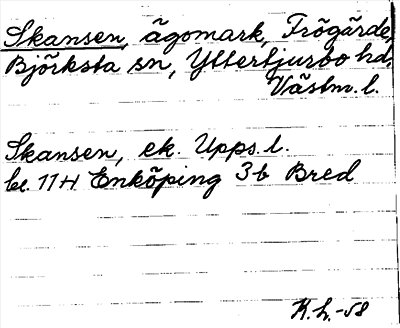 Skansen, ägomark, Frögärde,
Björksta sn, Yttertjurbo hd,
Västm. l.
Skansen, ek. Upps. l.
bl. 11H Enköping 3b Bred
K.h.-58